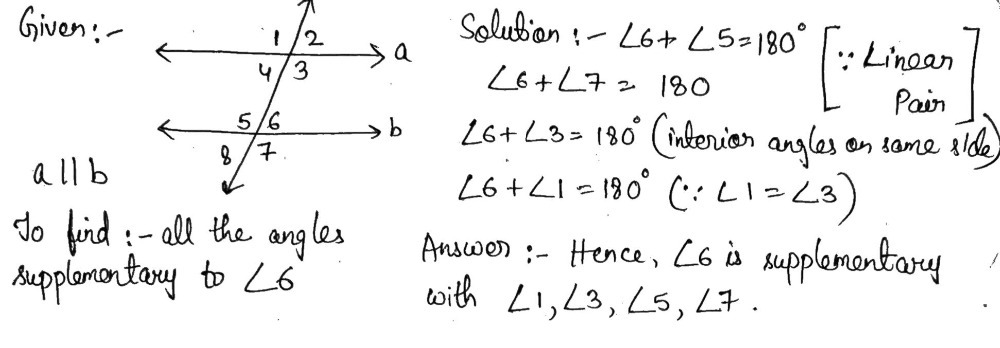 Given :-
1 2
a
4 3
5 6
b
8 7
a || b
To find :- all the angles
supplementary to ∠6
Solution :- ∠6 + ∠5 = 180° [∵ Linear
Pair]
∠6 + ∠7 = 180
∠6 + ∠3 = 180° (interior angles on same side)
∠6 + ∠1 = 180° (∵ ∠1 = ∠3)
Answer :- Hence, ∠6 is supplementary
with ∠1, ∠3, ∠5, ∠7.